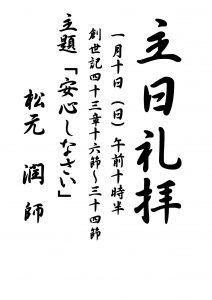 主日礼拝
一月十日（日）午前十時半
創世記四十三章十六節～三十四節
主題「安心しなさい」
松元　潤師